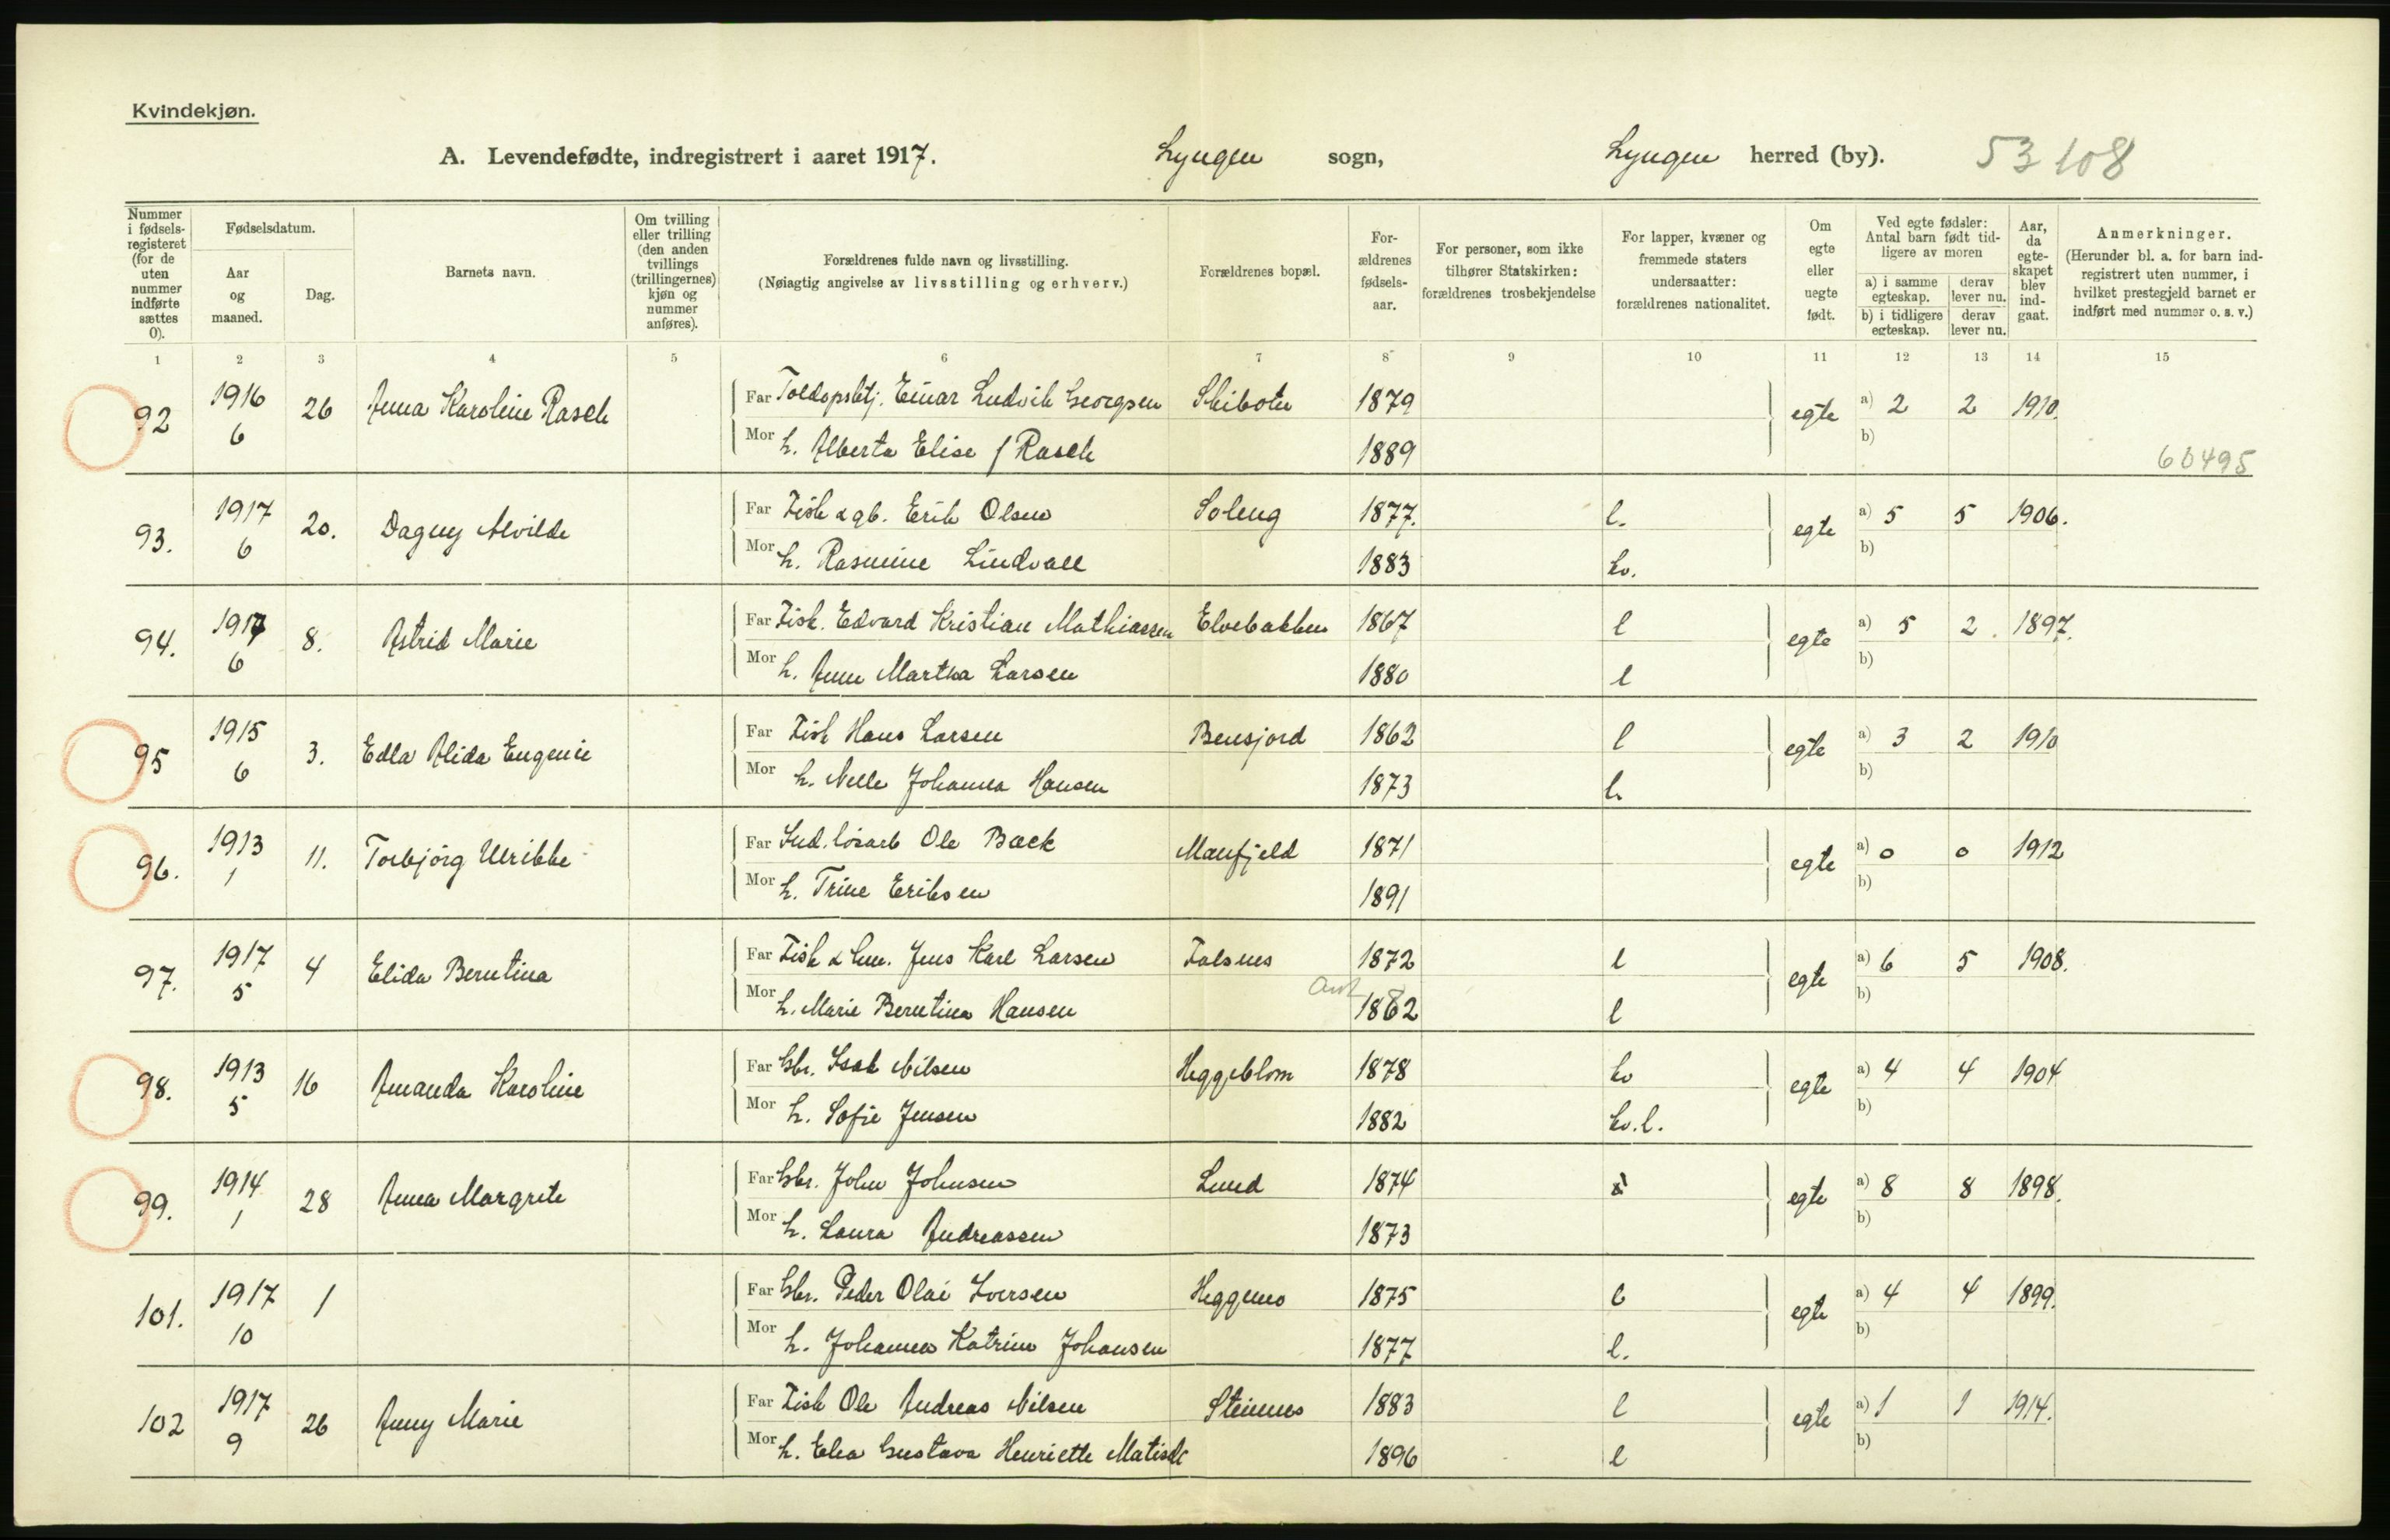 Kvindekjøn.
A. Levendefødte, indregistrert i aaret 1917. Lyngen sogn, Lyngen herred (by). 53108
Nummer i fødsels-registeret (for de uten nummer indførte sættes 0).
Fødselsdatum.
Aar og maaned.
Dag.
Barnets navn.
Om tvilling eller trilling (den anden tvillings (trillingernes) kjøn og nummer anføres).
Forældrenes fulde navn og livsstilling.
(Nøiagtig angivelse av livsstilling og erhverv.)
Forældrenes bopæl.
For-ældrenes fødsels-aar.
For personer, som ikke tilhører Statskirken: forældrenes trosbekjendelse
For lapper, kvæner og fremmede staters undersaatter: forældrenes nationalitet.
Om egte eller uegte født.
Ved egte fødsler: Antal barn født tid-ligere av moren
a) i samme egteskap. derav lever nu.
b) i tidligere egteskap. derav lever nu.
Aar, da egte-skapet blev ind-gaat.
Anmerkninger.
(Herunder bl. a. for barn ind-registrert uten nummer, i hvilket prestegjeld barnet er indført med nummer o. s. v.)
1 2 3 4 5 6 7 8 9 10 11 12 13 14 15
92 1916 6 26 Anna Karoline Rasch Far Toldopsbtj. Einar Ludvik Georgsen Skibotn 1879 egte a) 2 2 1910.
Mor h. Alberta Elise f Rasch 1889 b) 60495
93. 1917 6 20. Dagny Alvilde Far Fisk & gb. Erik Olsen Soleng 1877. l. egte a) 5 5 1906.
Mor h. Rasmine Lindvall 1883 kv. b)
94. 1917 6 8. Astrid Marie Far Fisk. Edvard Kristian Mathiassen Elvebakken 1867 l egte a) 5 2. 1897.
Mor h. Anne Martha Larsen 1880 l b)
95 1915 6 3. Edla Alida Eugenie Far Fisk Hans Larsen Bensjord 1862 l egte a) 3 2 1910
Mor h. Nelle Johanna Hansen 1873 l. b)
96. 1913 1 11. Torbjörg Ulrikke Far Ind. løsarb Ole Bæck Manfjeld 1871 egte a) 0 0 1912
Mor h. Trine Eriksen 1891 b)
97. 1917 5 4 Elida Berntina Far Fisk & Jens Karl Larsen Falsnes 1872 l egte a) 6 5 1908.
Mor h. Marie Berntina Hansen 1882 l b)
98. 1913 5 16 Amanda Karoline Far Gbr. Isak Nilsen Heggeblom 1878 kv egte a) 4 4 1904
Mor h. Sofie Jensen 1882 kv. l. b)
99. 1914 1 28 Anna Margrete Far Gbr. John Johnsen Lund 1874 egte a) 8 8 1898.
Mor h. Laura Andreassen 1873 b)
101. 1917 10 1 Far Gbr. Peder Olai Iversen Heggenes 1875 l egte a) 4 4 1899.
Mor h. Johanna Katrine Johansen 1877 l. b)
102 1917 9 26 Anny Marie Far Fisk Ole Andreas Nilsen Steinnes 1883 l egte a) 1 1 1914.
Mor h. Elea Gustava Henriette Matisdt 1896 l b)